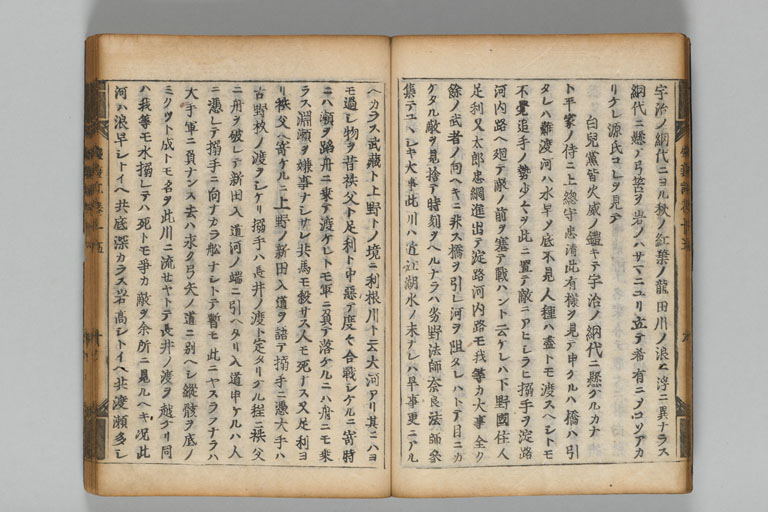 宇治ノ網代ニヨル秋ノ紅葉ノ龍田川ノ浪ニ浮ニ異ナラス
網代ニ懸テ弓筈ヲ岩ノハサマニユリ立テ希有ニソヨツアカ
リケレ源氏コレヲ見テ
白兒黨皆火威ノ鎧キテ宇治ノ網代ニ懸ケルカナ
ト平家ノ侍ニ上総守忠清此有樣ヲ見テ申ケルハ橋ハ引
タレハ難渡河ハ水早ソ底不見人種ハ盡トモ渡スヘシトモ
不覺追手ノ勢少々ヲハ此ニ置テ敵ニアヒシラヒ搦手ヲ淀路
河内路ヘ廻テ敵ノ前ヲ塞テ戰ハント云ケレハ下野國住人
足利又太郎忠綱進出テ淀路河内路モ我等カ大事全ク
餘ノ武者ノ向ヘキニ非ス橋ヲ引レ河ヲ阻タレハトテ目ニカ
ケタル敵ヲ見捨テ時刻ヲヘルナラハ芳野法師奈良法師参
集テユヽシキ大事此川ハ近江湖水ノ末ナレハ旱事更ニアル
ヘカラス武蔵ト上野トノ境ニ利根川ト云大河アリ其ニハヨ
モ過シ物ヲ昔秩父ト足利ト中惡テ度々合戰シケルニ寄時
ニハ瀬ヲ踏舟ニ乗テ渡ケレトモ軍ニ負テ落ケルニハ舟ニモ乗
ラス淵瀬ヲ嫌事ナシサレ共馬モ殺サス人モ死ナス又足利ヨ
リ秩父ヘ寄ケルニ上野ノ新田入道ヲ語テ搦手ニ憑大手ハ
古野杉ノ渡ヲシケリ搦手ハ長井ノ渡ト定タリケル程ニ秩父
ニ舟ヲ破レテ新田入道河ノ端ニ引ヘタリ入道申ケルハ人
ニ憑レテ搦手ニ向ナカラ船ナシトテ暫モ此ニヤスラフナラハ
大手軍ニ負ナンス去ハ永ク弓矢ノ道ニ別ヘシ縦骸ヲ底ノ
ミクツト成トモ名ヲ此川ニ流セヤトテ長井ノ渡ヲ越ケリ同
ハ我等モ水溺レテハ死トモ爭カ敵ヲ余所ニ見ルヘキ況此
河ハ浪早シトイヘ共底深カラス岩高シトイヘ共渡瀬多シ